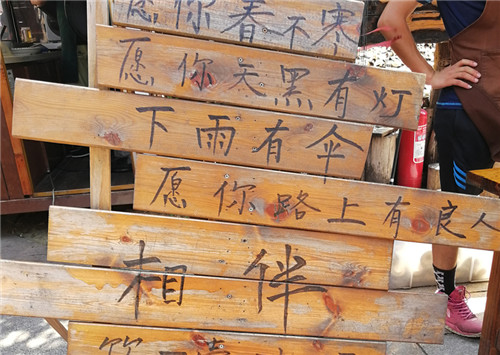 愿你春不寒
愿你天黑有灯
下雨有伞
愿你路上有良人
相伴